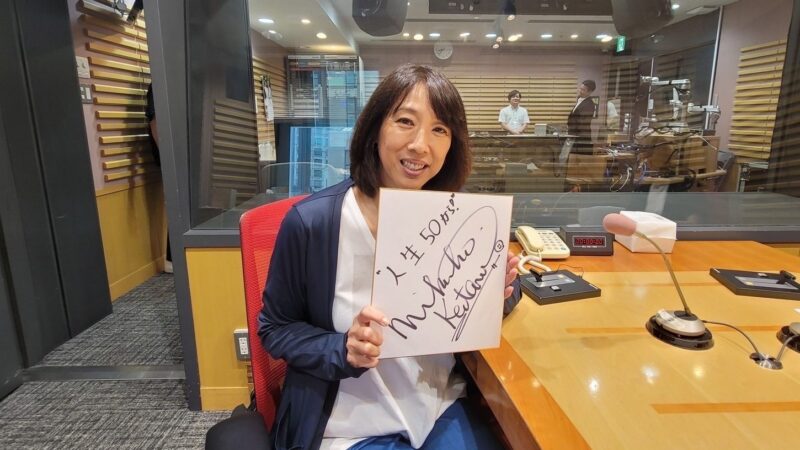 "人生50から!"
Mikako
Kotani